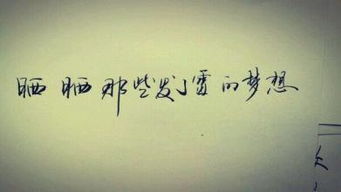 晒晒那些发了霉的梦想